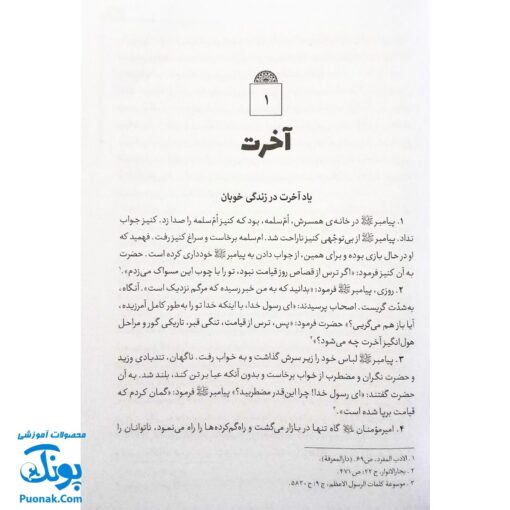 ۱
آخرت
یاد آخرت در زندگی خوبان
۱. پیامبر ﷺ در خانه‌ی همسرش، اُمّ‌سلمه، بود که کنیز اُمّ‌سلمه را صدا زد. کنیز جواب
نداد. پیامبر ﷺ از بی‌توجّهی کنیز ناراحت شد. ام‌سلمه برخاست و سراغ کنیز رفت. فهمید که
او در حال بازی بوده و برای همین، از جواب دادن به پیامبر ﷺ خودداری کرده است. حضرت
به آن کنیز فرمود: «اگر ترس از قصاص روز قیامت نبود، تو را با چوب این مسواک می‌زدم».۱
۲. روزی، پیامبر ﷺ فرمود: «بدانید که به من خبر رسیده که مرگم نزدیک است». آنگاه،
به‌شدّت گریست. اصحاب پرسیدند: «ای رسول خدا، با اینکه خدا تو را به‌طور کامل آمرزیده،
آیا باز هم می‌گریی؟» حضرت فرمود: «پس، ترس از قیامت، تنگی قبر، تاریکی گور و مراحل
هول‌انگیز آخرت چه می‌شود؟»۲
۳. پیامبر ﷺ لباس خود را زیر سرش گذاشت و به خواب رفت. ناگهان، تندبادی وزید
و حضرت نگران و مضطرب از خواب برخاست و بدون آنکه عبا بر تن کند، بلند شد. به آن
حضرت گفتند: «ای رسول خدا! چرا این‌قدر مضطربید؟» پیامبر ﷺ فرمود: «گمان کردم که
قیامت برپا شده است».۳
۴. امیرمؤمنان گاه تنها در بازار می‌گشت و راه‌گم‌کرده‌ها را راه می‌نمود، ناتوانان را
۱. الادب المفرد، ص۶۹. (دارالمعرفة).
۲. بحارالانوار، ج ۲۲؛ ص ۴۷۱.
۳. موسوعة کلمات الرسول الاعظم، ج ۹؛ ح ۵۸۳۰.
محصولات آموزشی
پونک
Puonak.Com